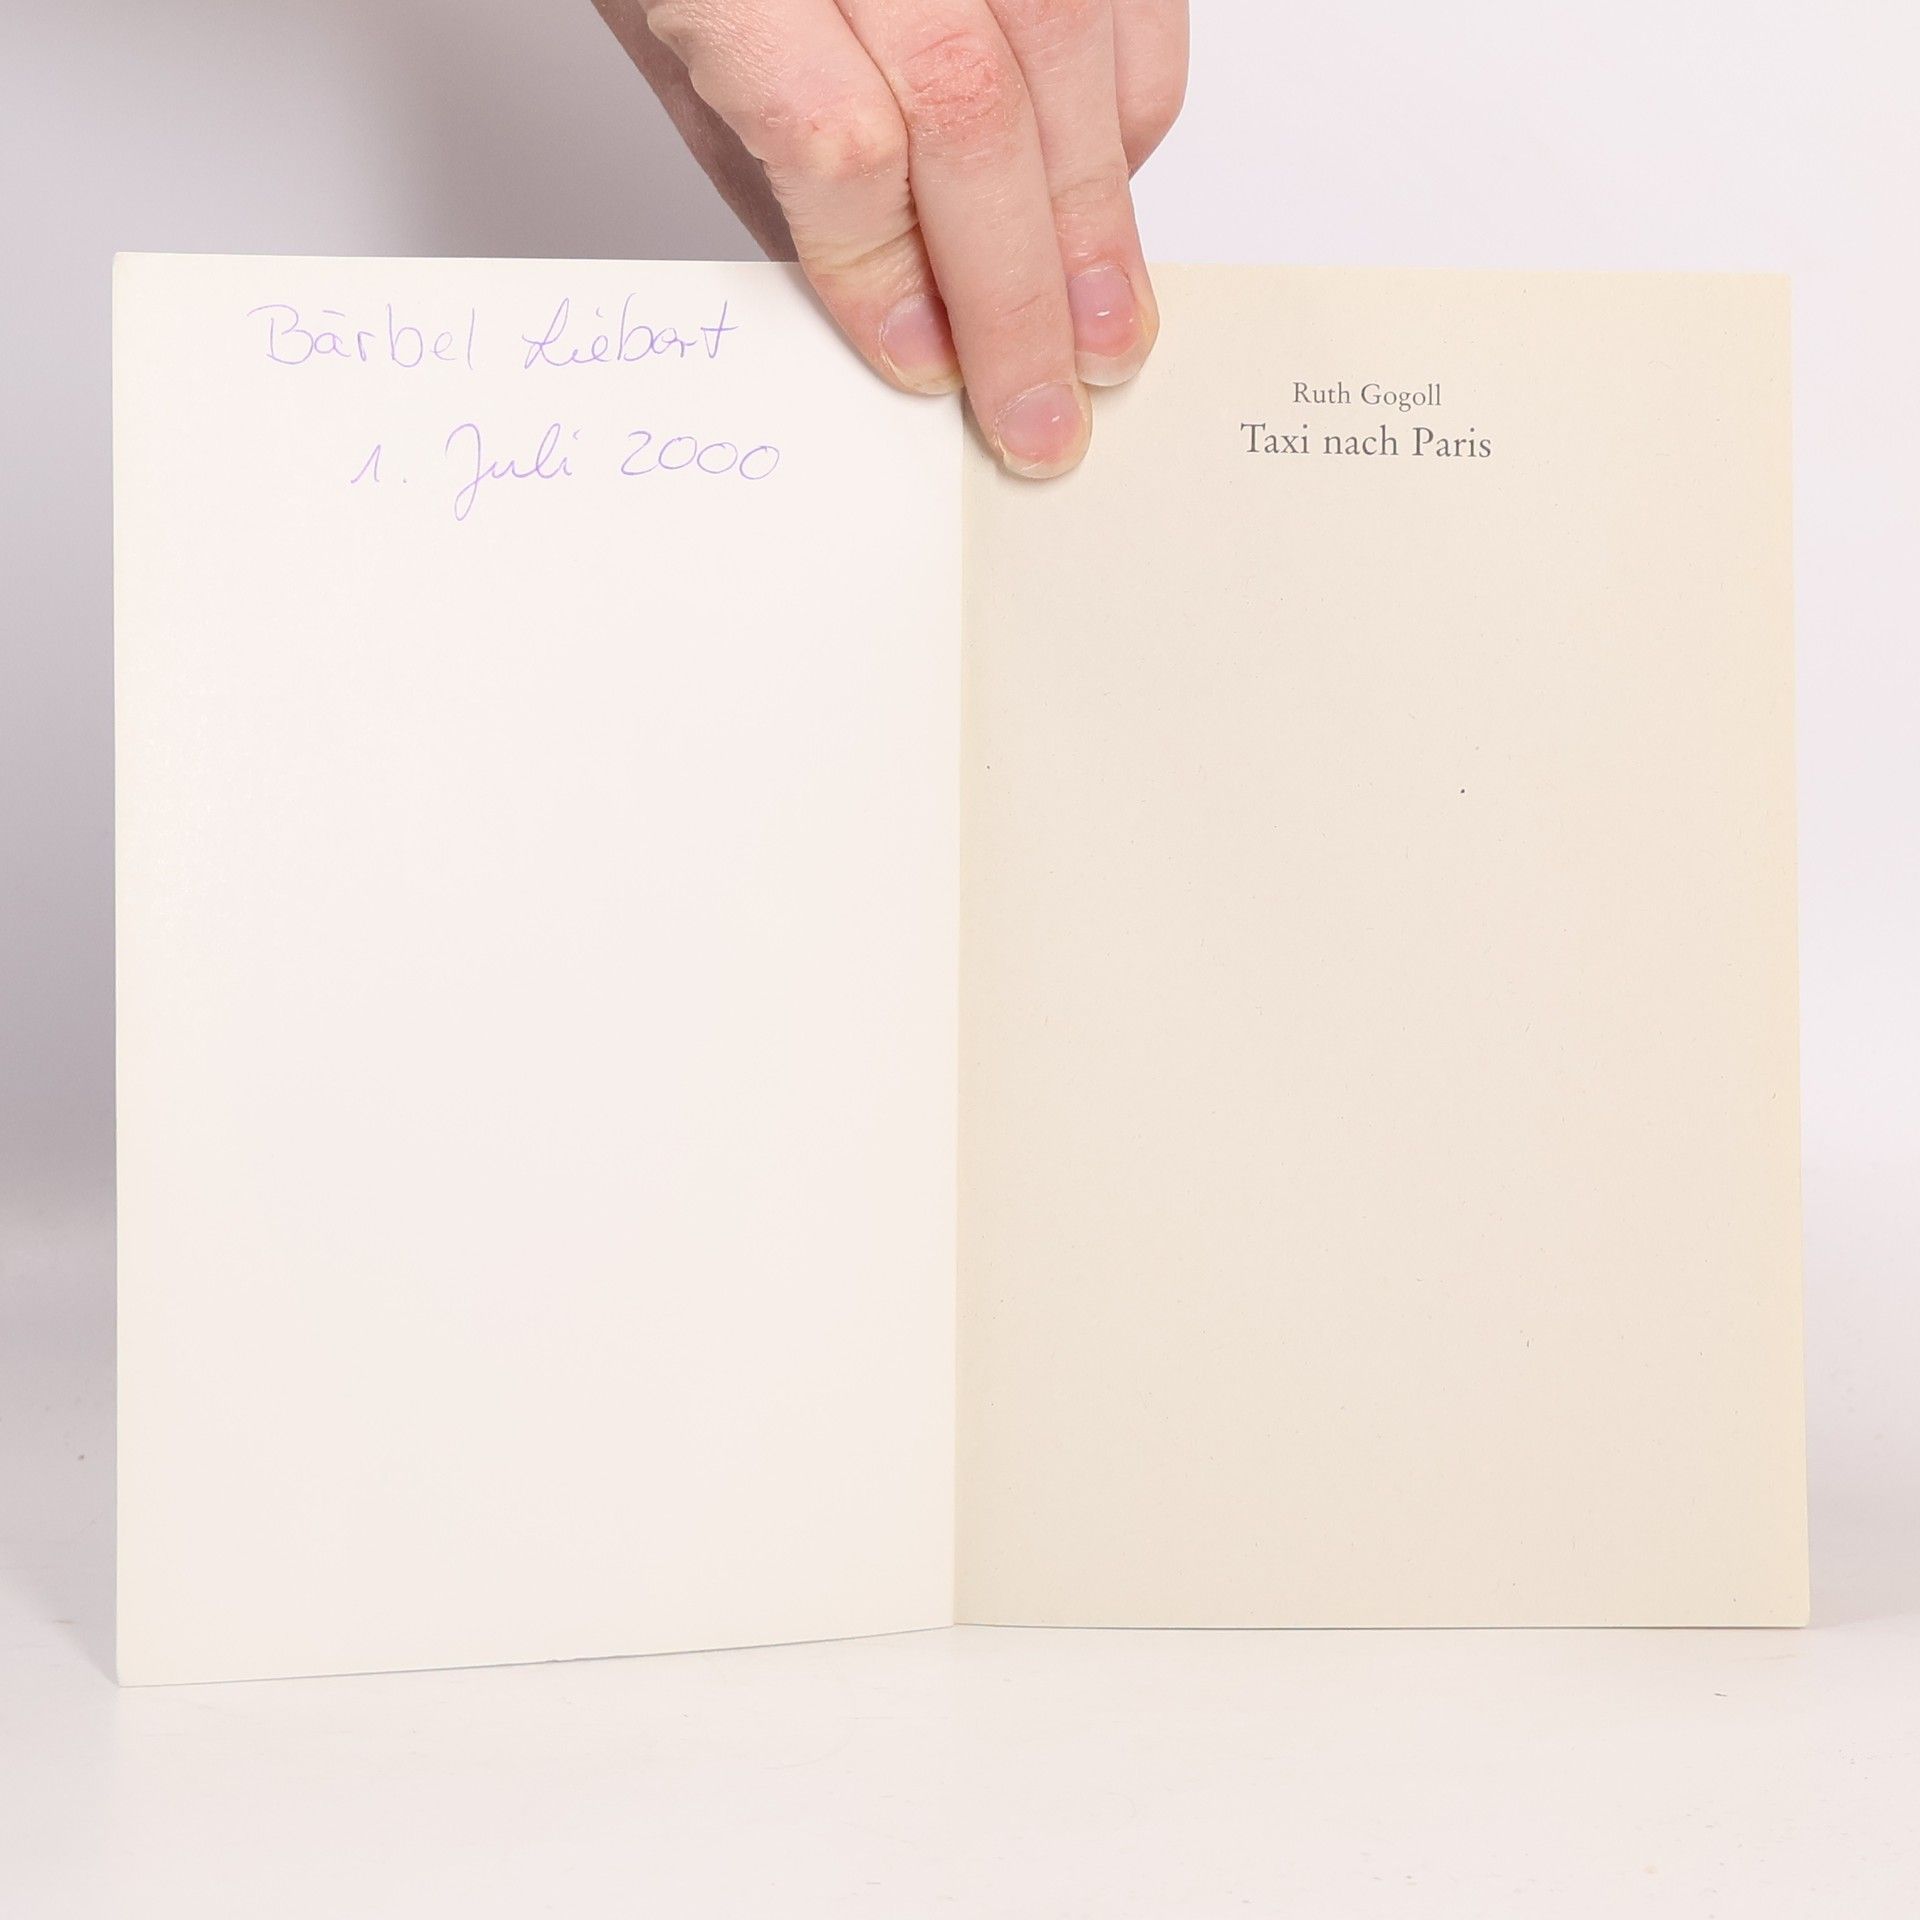 Bärbel Liebart
1. Juli 2000
Ruth Gogoll
Taxi nach Paris